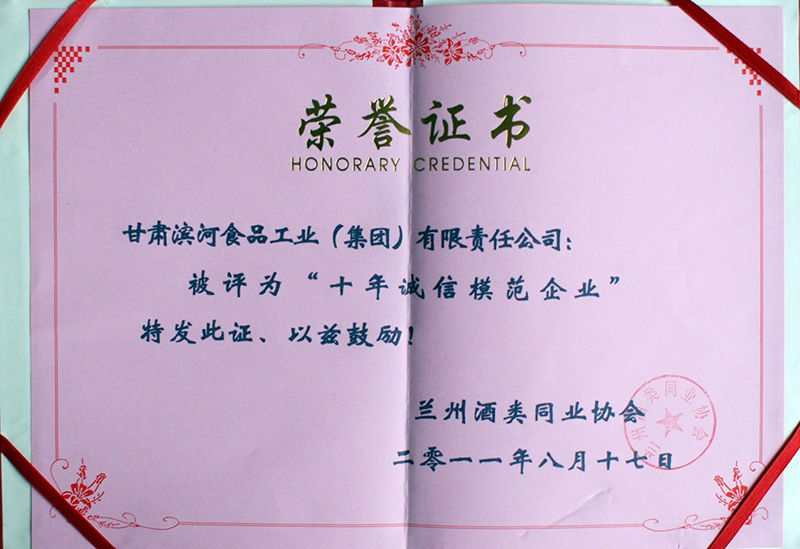 荣誉证书
HONORARY CREDENTIAL
甘肃滨河食品工业（集团）有限责任公司：
被评为“十年诚信模范企业”
特发此证、以兹鼓励！
兰州酒类同业协会
二零一一年八月十七日
兰州酒类同业协会